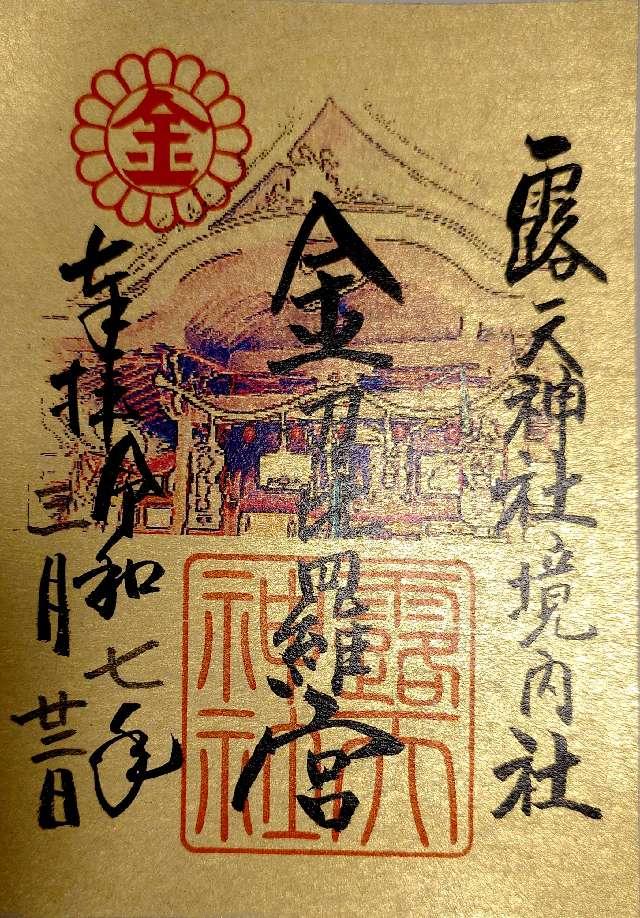 露天神社境内社
金刀比羅宮
奉拝令和七年
三月廿二日
金
露天
神社